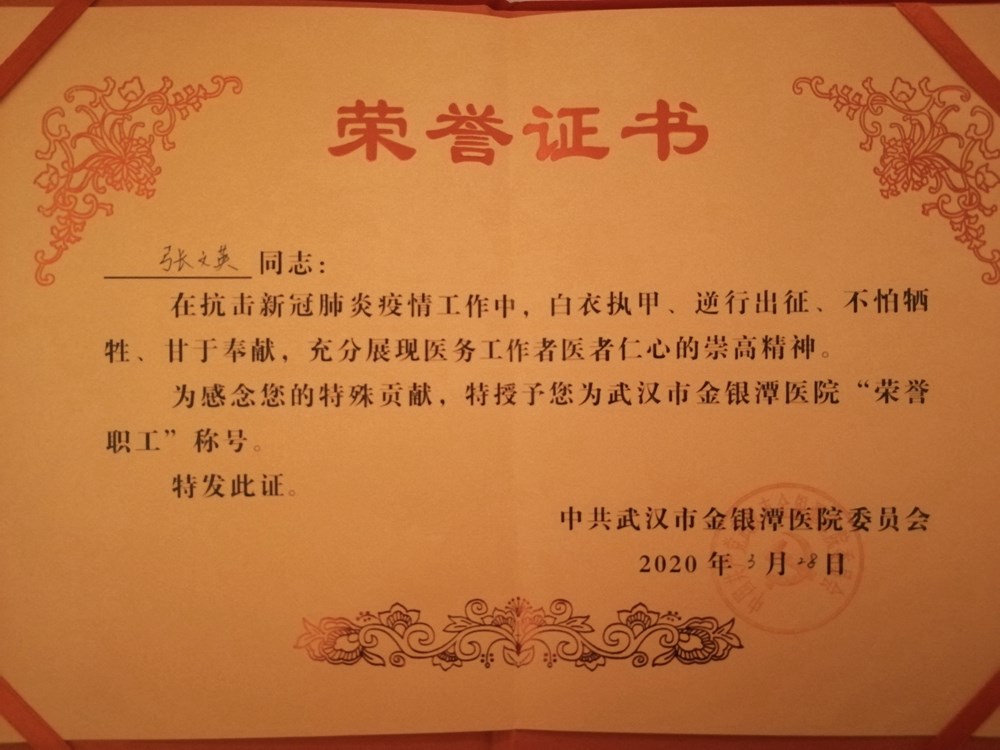 荣誉证书
张文英 同志：
在抗击新冠肺炎疫情工作中，白衣执甲、逆行出征、不怕牺
牲、甘于奉献，充分展现医务工作者医者仁心的崇高精神。
为感念您的特殊贡献，特授予您为武汉市金银潭医院“荣誉
职工”称号。
特发此证。
中共武汉市金银潭医院委员会
2020 年 3 月 28 日